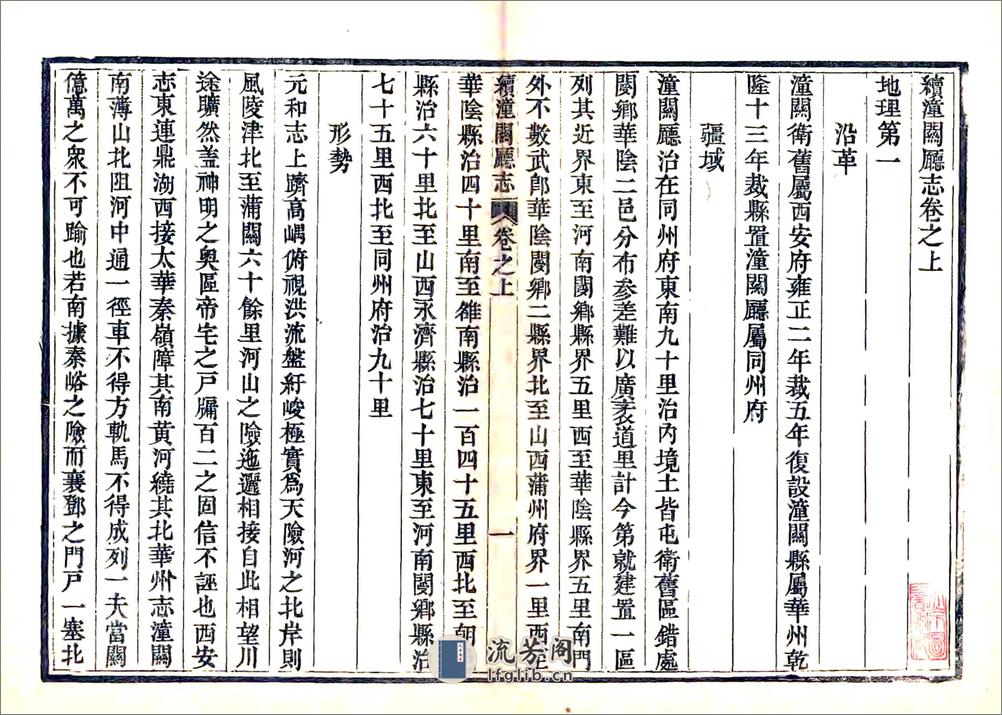 續潼關廳志卷之上
地理第一
沿革
潼關衛舊屬西安府雍正二年裁五年復設潼關縣屬華州乾
隆十三年裁縣置潼關廳屬同州府
疆域
潼關廳治在同州府東南九十里治內境土皆屯衛舊區錯處
閿鄉華陰二邑分布參差難以廣袤道里計今第就建置一區
列其近界東至河南閿鄉縣界五里西至華陰縣界五里南門
外不數武即華陰閿鄉二縣界北至山西蒲州府界一里西至
續潼關廳志 卷之上 一
華陰縣治四十里南至雒南縣治一百四十五里西北至朝
縣治六十里北至山西永濟縣治七十里東至河南閿鄉縣治
七十五里西北至同州府治九十里
形勢
元和志上躋高嵎俯視洪流盤紆峻極實為天險河之北岸則
風陵津北至蒲關六十餘里河山之險迤邐相接自此相望川
途曠然蓋神明之奧區帝宅之戸牖百二之固信不誣也西安
志東連鼎湖西接太華秦嶺障其南黃河繞其北華州志潼關
南薄山北阻河中通一徑車不得方軌馬不得成列一夫當關
億萬之衆不可踰也若南據秦峪之險而襄鄧之門戸一塞北
流芳阁
lfglib.cn